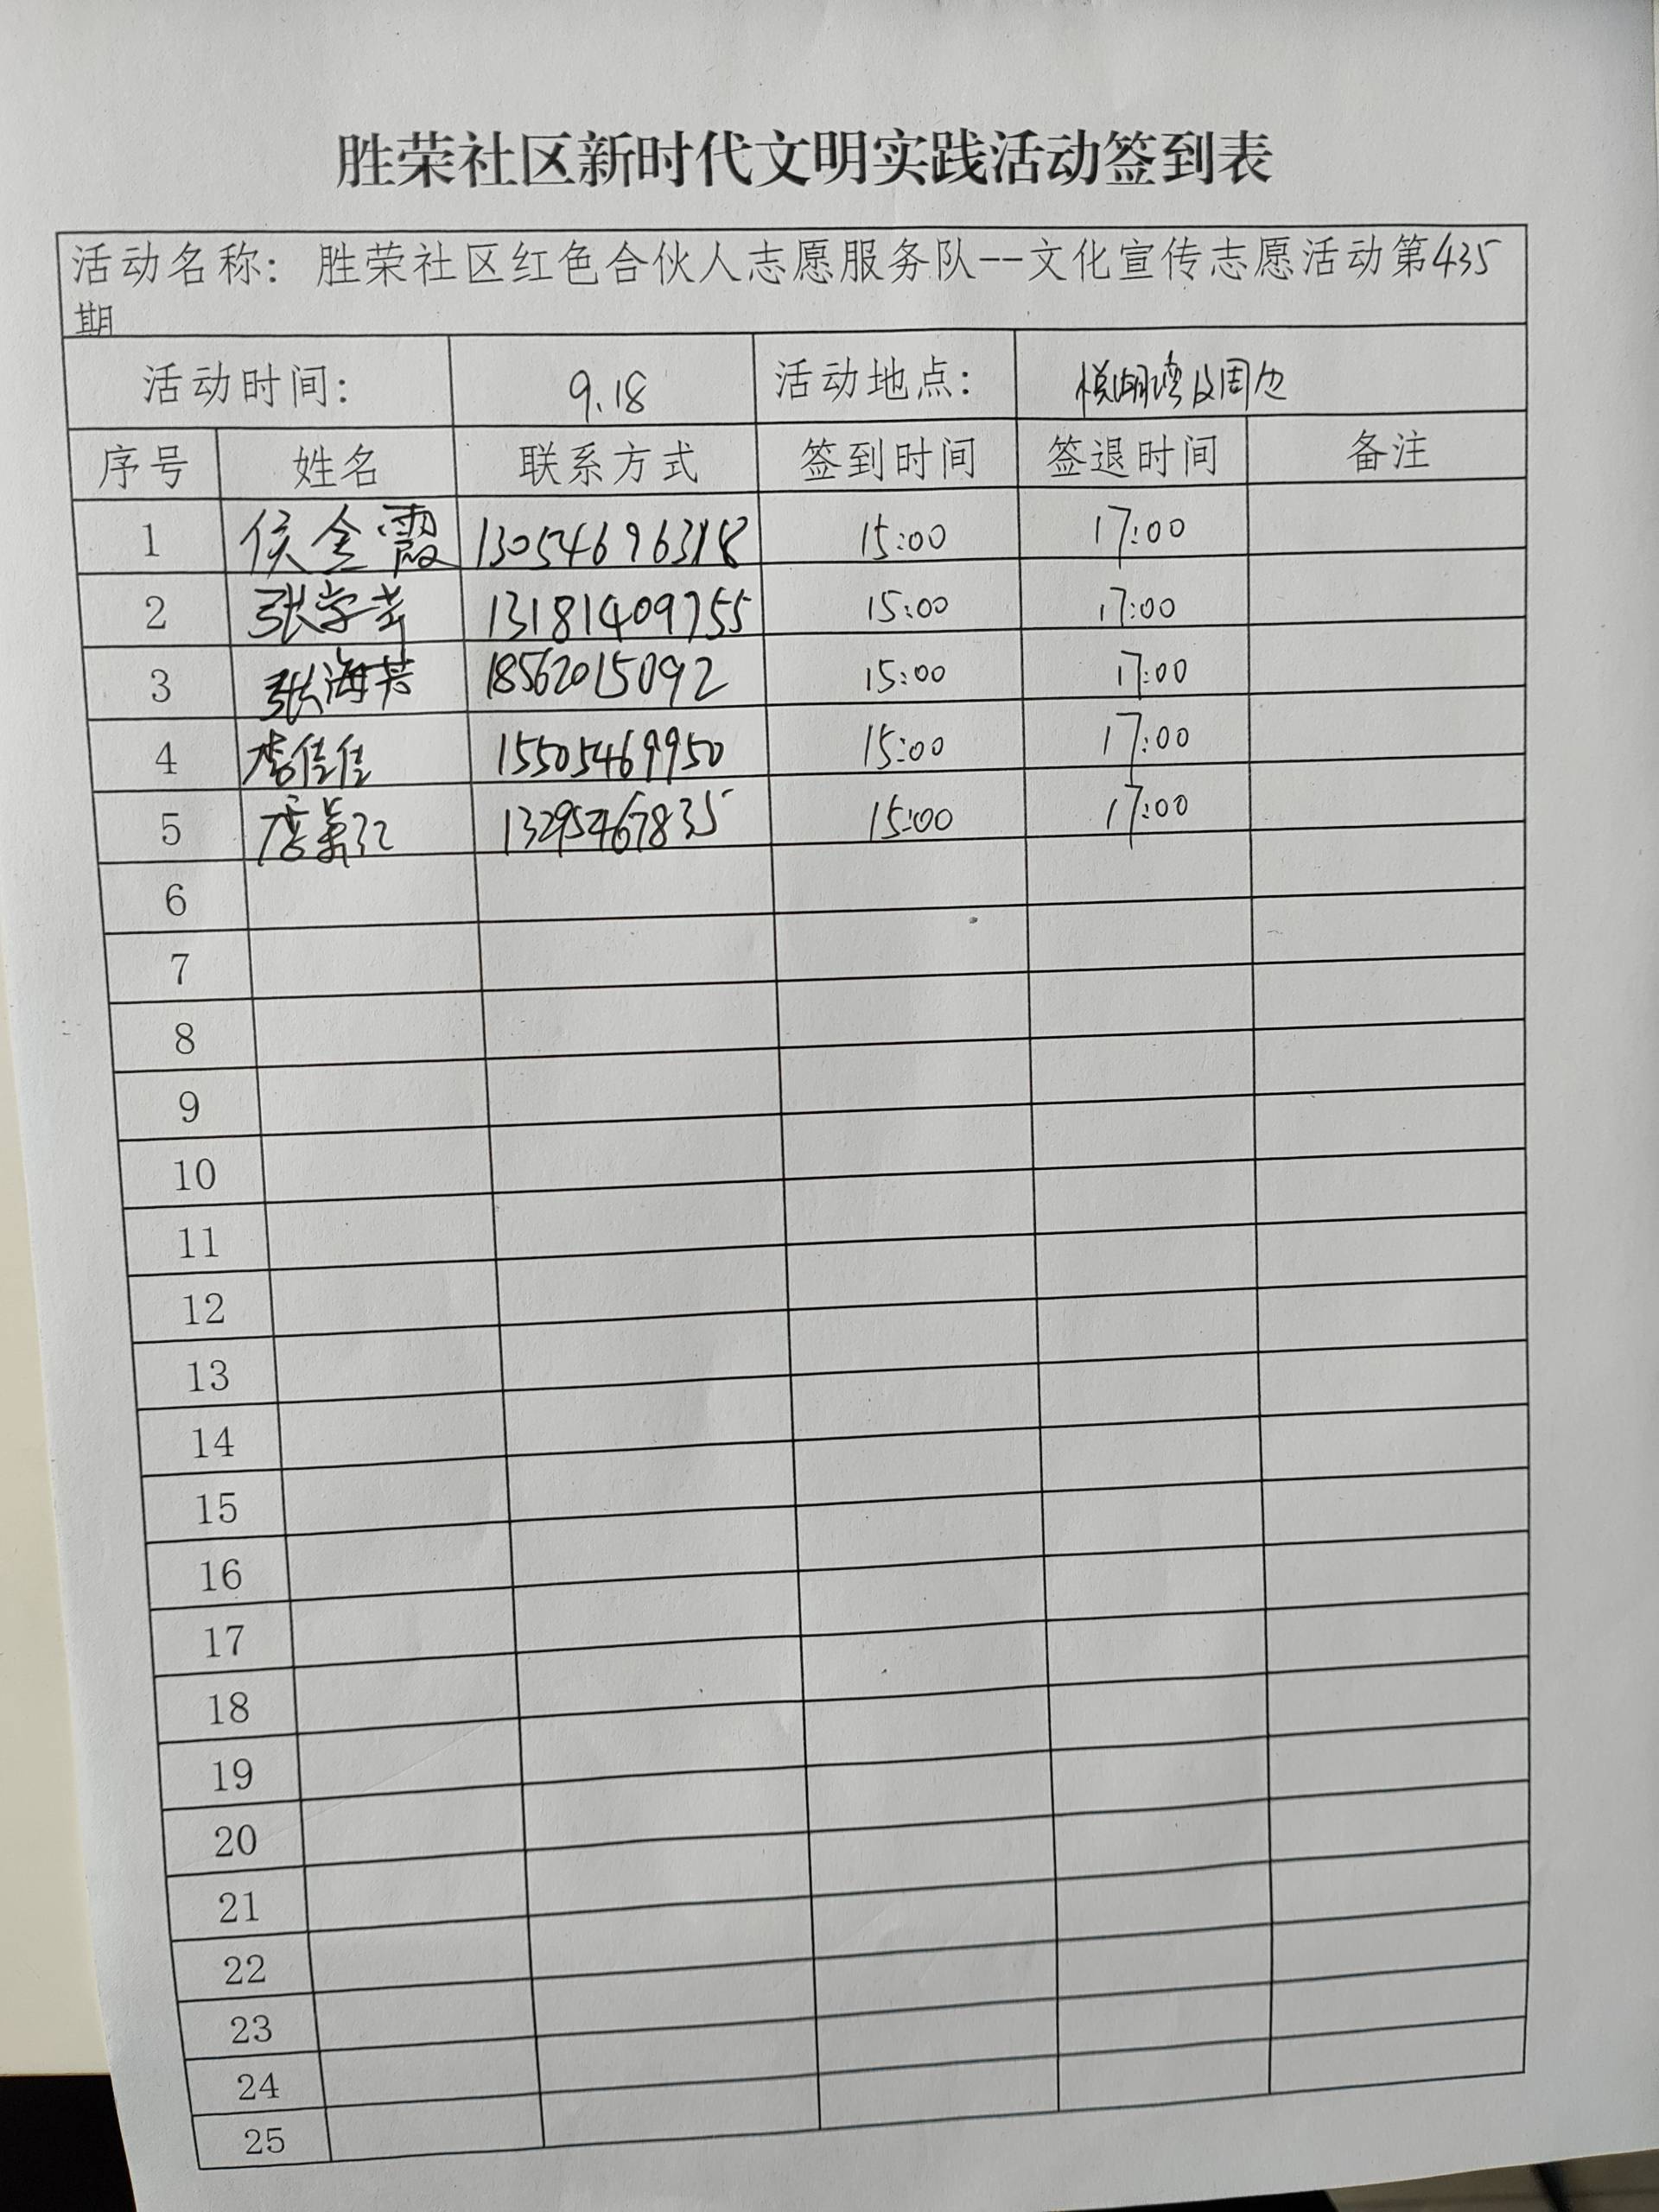 胜荣社区新时代文明实践活动签到表
活动名称: 胜荣社区红色合伙人志愿服务队--文化宣传志愿活动第435
期
活动时间: 9.18 活动地点: 悦湖湾及周边
序号 姓名 联系方式 签到时间 签退时间 备注
1 侯金霞 13054696318 15:00 17:00
2 张学芳 13181409755 15:00 17:00
3 张海芳 18562015092 15:00 17:00
4 李佳佳 15505469950 15:00 17:00
5 13295467835 15:00 17:00
6
7
8
9
10
11
12
13
14
15
16
17
18
19
20
21
22
23
24
25